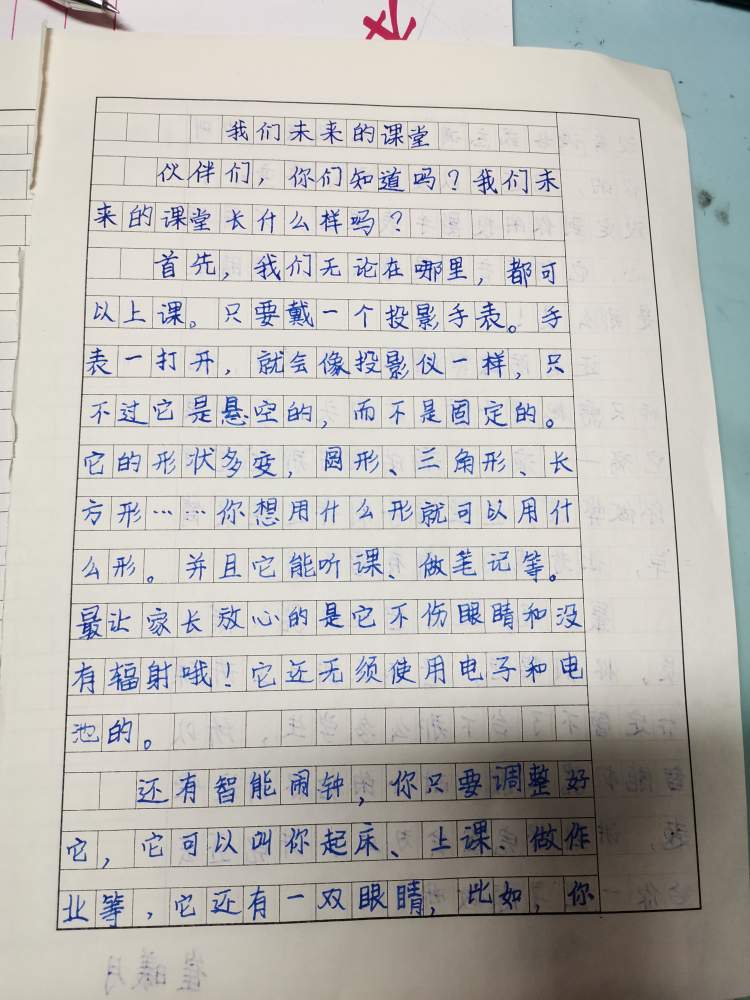 我们未来的课堂
伙伴们，你们知道吗？我们未
来的课堂长什么样吗？
首先，我们无论在哪里，都可
以上课。只要戴一个投影手表。手
表一打开，就会像投影仪一样，只
不过它是悬空的，而不是固定的。
它的形状多变，圆形、三角形、长
方形……你想用什么形就可以用什
么形。并且它能听课、做笔记等。
最让家长放心的是它不伤眼睛和没
有辐射哦！它还无须使用电子和电
池的。
还有智能闹钟，你只要调整好
它，它可以叫你起床、上课、做作
业等，它还有一双眼睛，比如，你